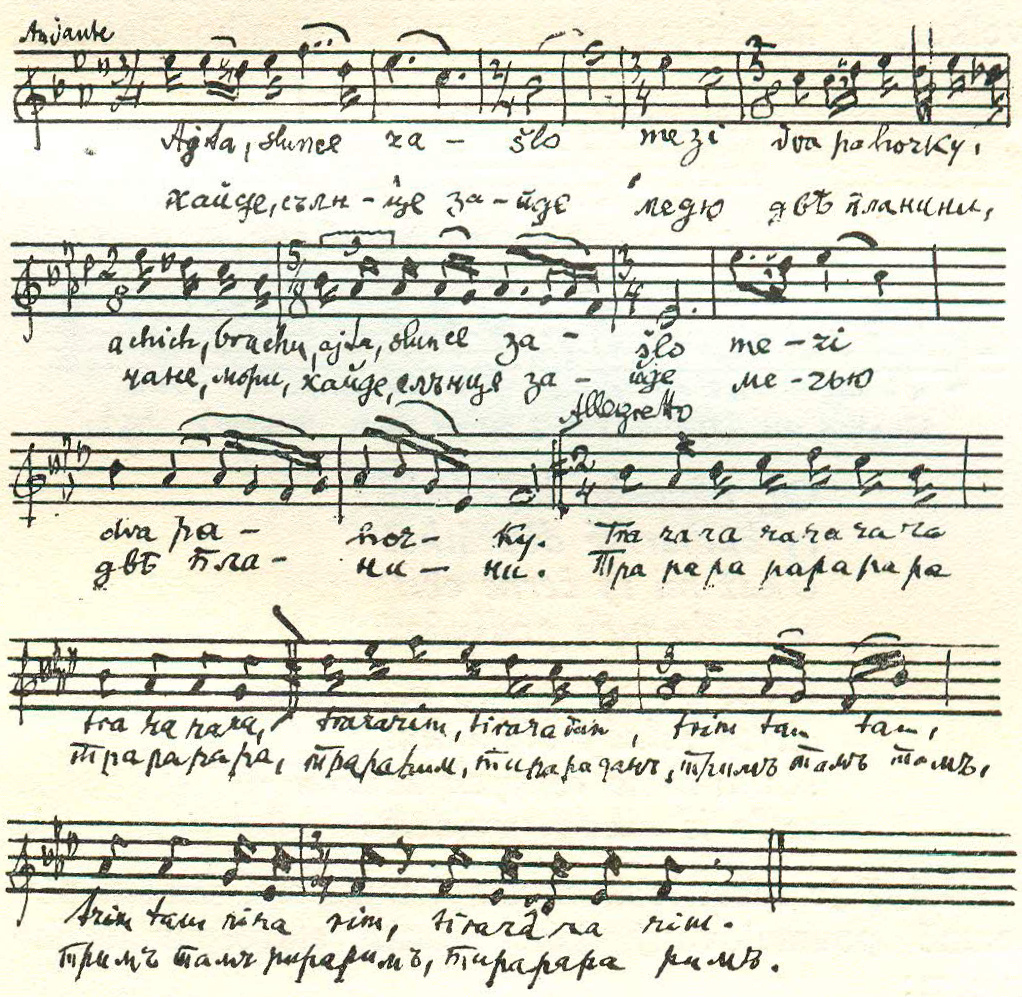 Andante
Ajta, slunce za – šlo mezi dva pahorky,
хайде, сълн – це за – йде медю двѣ планини,
achich, brachu, ajta, slunce za – šlo me – zi
чане, мори, хайде, слънце за – йде ме – чью
Allegretto
dva pa – hor – ky. Tra rara rarararara
двѣ пла – ни – ни. Тра рара рарарара
tra rarara, trararim, tirara tam, trim tam tam,
трарарара, трарарим, тирара тамъ, тримъ тамъ тамъ,
trim tam rira rim, tirarara rim.
тримъ тамъ рираримъ, тирарара римъ.